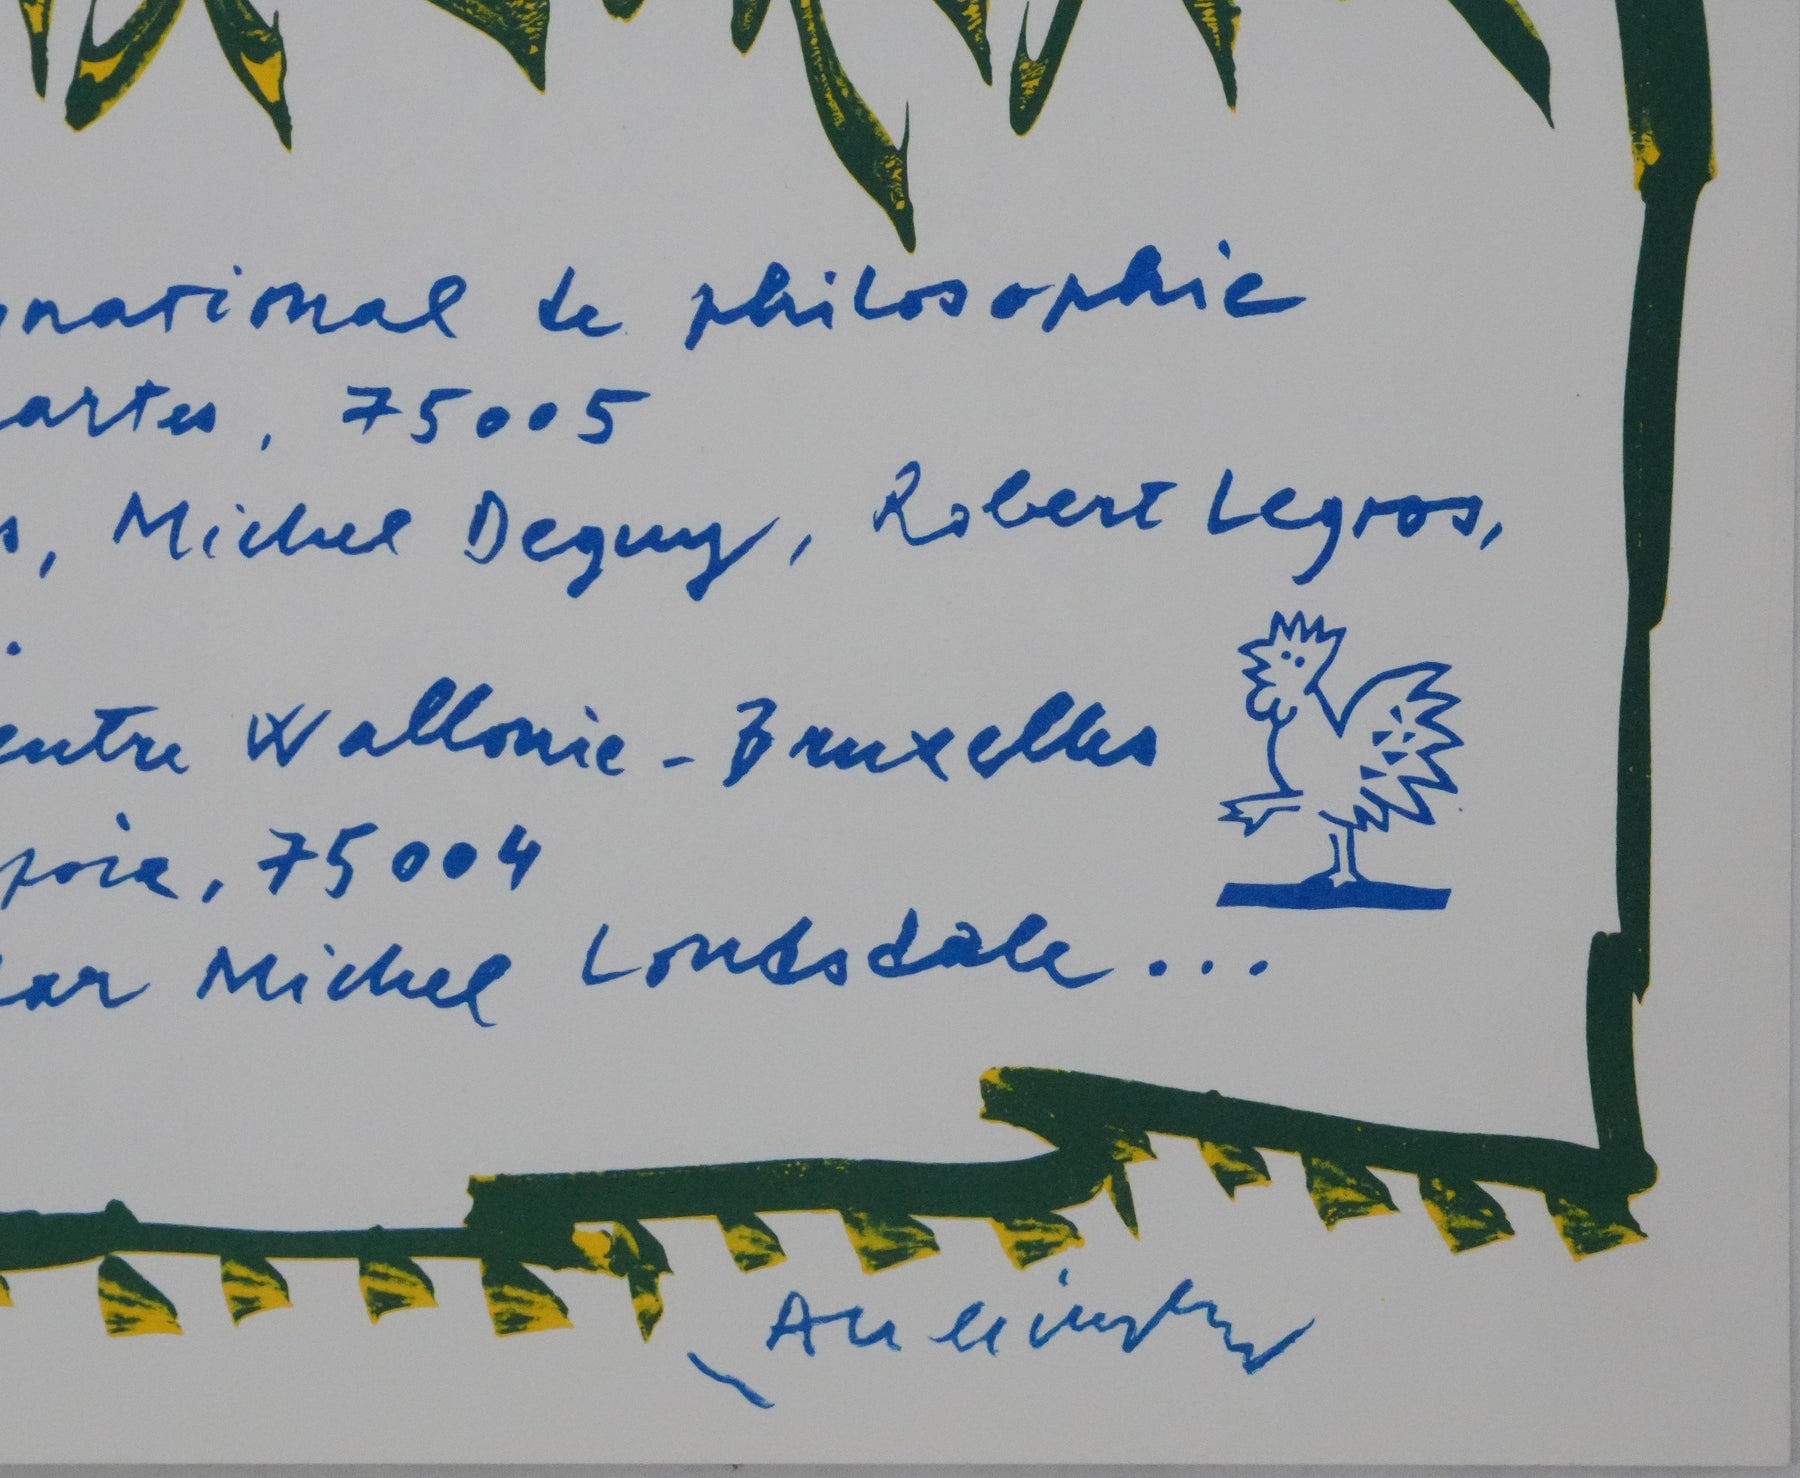 national de philosophie
artes, 75005
s, Michel Deguy, Robert Legros,
.
entre Wallonie-Bruxelles
poix, 75004
ar Michel Londsdale...
Alechinsky